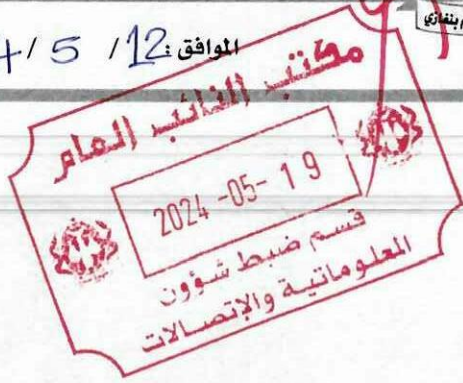 بنغازي
الموافق: 12 / 5 /
مكتب النائب العام
2024 -05- 19
قسم ضبط شؤون
المعلوماتية والإتصالات